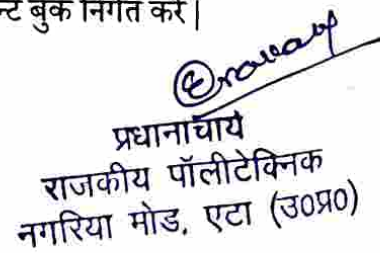 बुक निर्गत करें।
प्रधानाचार्य
राजकीय पॉलीटेक्निक
नगरिया मोड, एटा (उ०प्र०)